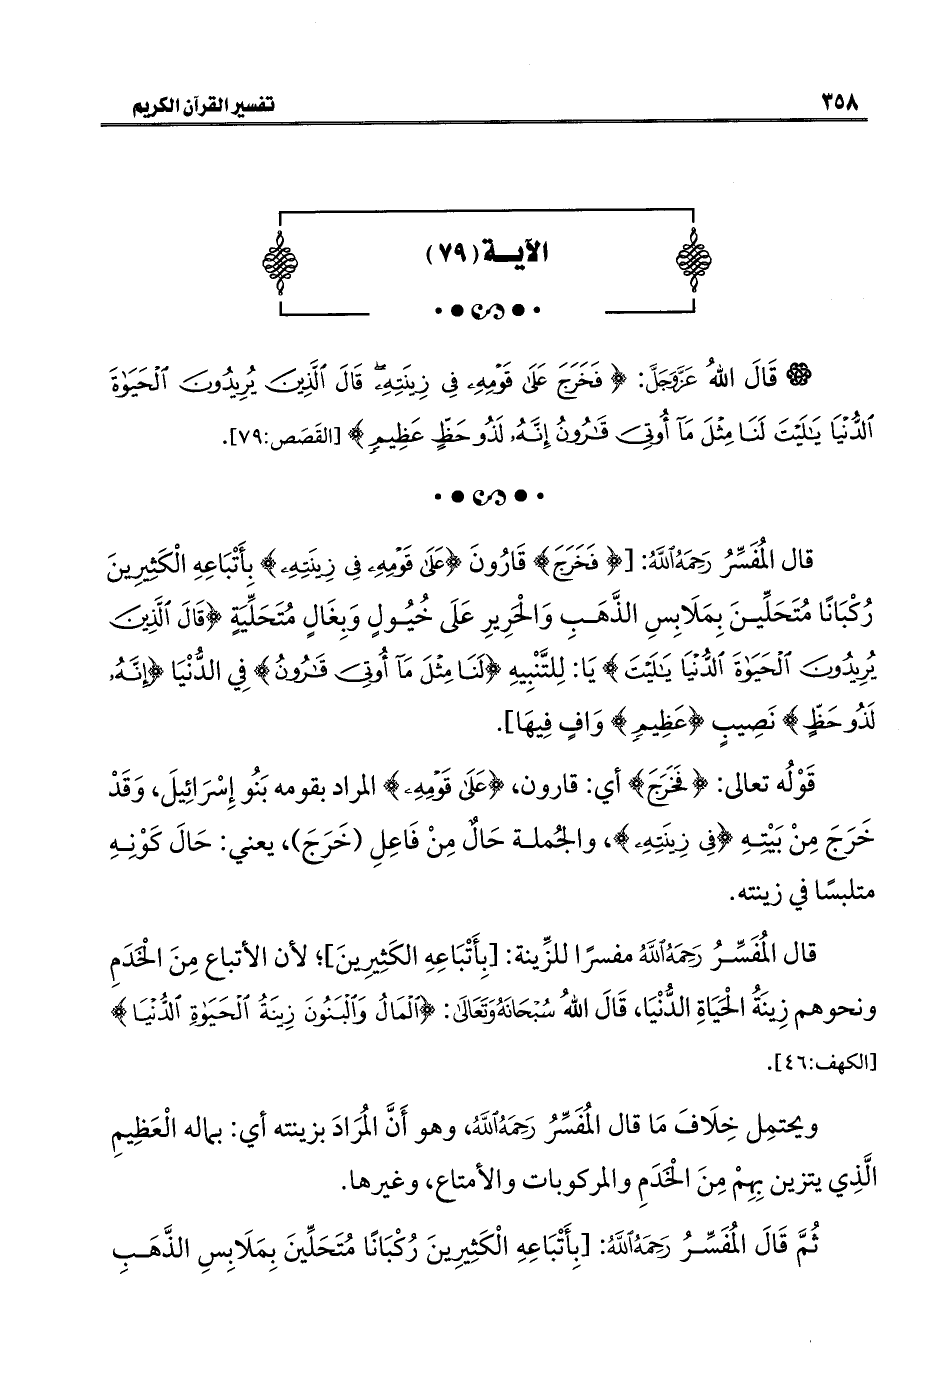 ٣٥٨
تفسير القرآن الكريم
الآيــة (٧٩)
قَالَ اللهُ عَزَّوَجَلَّ: ﴿ فَخَرَجَ عَلَىٰ قَوْمِهِۦ فِي زِينَتِهِۦۖ قَالَ ٱلَّذِينَ يُرِيدُونَ ٱلْحَيَوٰةَ
ٱلدُّنْيَا يَٰلَيْتَ لَنَا مِثْلَ مَآ أُوتِيَ قَٰرُونُ إِنَّهُۥ لَذُو حَظٍّ عَظِيمٖ ﴾ [القَصَص:٧٩].
قال المُفَسِّرُ رَحِمَهُ ٱللَّهُ: [﴿ فَخَرَجَ ﴾ قَارُونَ ﴿عَلَىٰ قَوْمِهِۦ فِي زِينَتِهِۦ ﴾ بِأَتْبَاعِهِ الْكَثِيرِينَ
رُكْبَانًا مُتَحَلِّيـنَ بِمَلَابِسِ الذَّهَـبِ وَالْحَرِيرِ عَلَى خُيُـولٍ وَبِغَالٍ مُتَحَلِّيَةٍ ﴿قَالَ ٱلَّذِينَ
يُرِيدُونَ ٱلْحَيَوٰةَ ٱلدُّنْيَا يَٰلَيْتَ ﴾ يَا: لِلتَّنْبِيهِ ﴿لَنَا مِثْلَ مَآ أُوتِيَ قَٰرُونُ ﴾ فِي الدُّنْيَا ﴿إِنَّهُۥ
لَذُو حَظٍّ ﴾ نَصِيبٍ ﴿عَظِيمٖ ﴾ وَافٍ فِيهَا].
قَوْلُه تعالى: ﴿ فَخَرَجَ﴾ أي: قارون، ﴿عَلَىٰ قَوْمِهِۦ ﴾ المراد بقومه بَنُو إِسْرَائِيلَ، وَقَدْ
خَرَجَ مِنْ بَيْتِـهِ ﴿فِي زِينَتِهِۦ ﴾، والجُملـة حَالٌ مِنْ فَاعِلِ (خَرَجَ)، يعني: حَالَ كَوْنِـهِ
متلبسًا في زينته.
قال المُفَسِّـرُ رَحِمَهُ ٱللَّهُ مفسرًا للزِّينة: [بِأَتْبَاعِهِ الكَثِيرِينَ]؛ لأن الأتباع مِنَ الْخَدَمِ
ونحوهم زِينَةُ الْحَيَاةِ الدُّنْيَا، قَالَ اللهُ سُبْحَانَهُ وَتَعَالَى: ﴿ٱلْمَالُ وَٱلْبَنُونَ زِينَةُ ٱلْحَيَوٰةِ ٱلدُّنْيَا ﴾
[الكهف:٤٦].
ويحتمِل خِلَافَ مَا قال المُفَسِّرُ رَحِمَهُ ٱللَّهُ، وهو أَنَّ المُرَادَ بزينته أي: بماله الْعَظِيمِ
الَّذِي يتزين بِهِمْ مِنَ الْخَدَمِ والمركوبات والأمتاع، وغيرها.
ثُمَّ قَالَ المُفَسِّـرُ رَحِمَهُ ٱللَّهُ: [بِأَتْبَاعِهِ الْكَثِيرِينَ رُكْبَانًا مُتَحَلِّينَ بِمَلَابِسِ الذَّهَـبِ